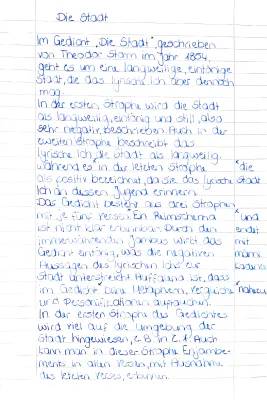 Die Stadt
Im Gedicht „Die Stadt", geschrieben
von Theodor Storm im Jahr 1852,
geht es um eine langweilige, eintönige
Stadt, die das lyrische Ich aber dennoch
mag.
In der ersten Strophe wird die Stadt
als langweilig, eintönig und still, also
sehr negativ, beschrieben. Auch in der
zweiten Strophe beschreibt das
lyrische Ich die Stadt als langweilig,
während es in der letzten Strophe *die
als positiv bezeichnet, da sie das lyrische Stadt
Ich an dessen Jugend erinnert.
Das Gedicht besteht aus drei Strophen
mit je fünf Versen. Ein Reimschema *und
ist nicht klar erkennbar. Durch den endet
immerwährenden Jambus wirkt das mit
Gedicht eintönig, was die negativen männl.
Aussagen des lyrischen Ichs zur Kadenz
Stadt unterstreicht. Auffallend ist, dass
im Gedicht Metaphern, Vergleiche
und Personifikationen auftauchen.
In der ersten Strophe des Gedichtes
wird viel auf die Umgebung der
Stadt hingewiesen, z.B. in Z. 1. Auch
kann man in dieser Strophe Enjambe-
ments in allen Versen, mit Ausnahme
des letzten Verses, erkennen.